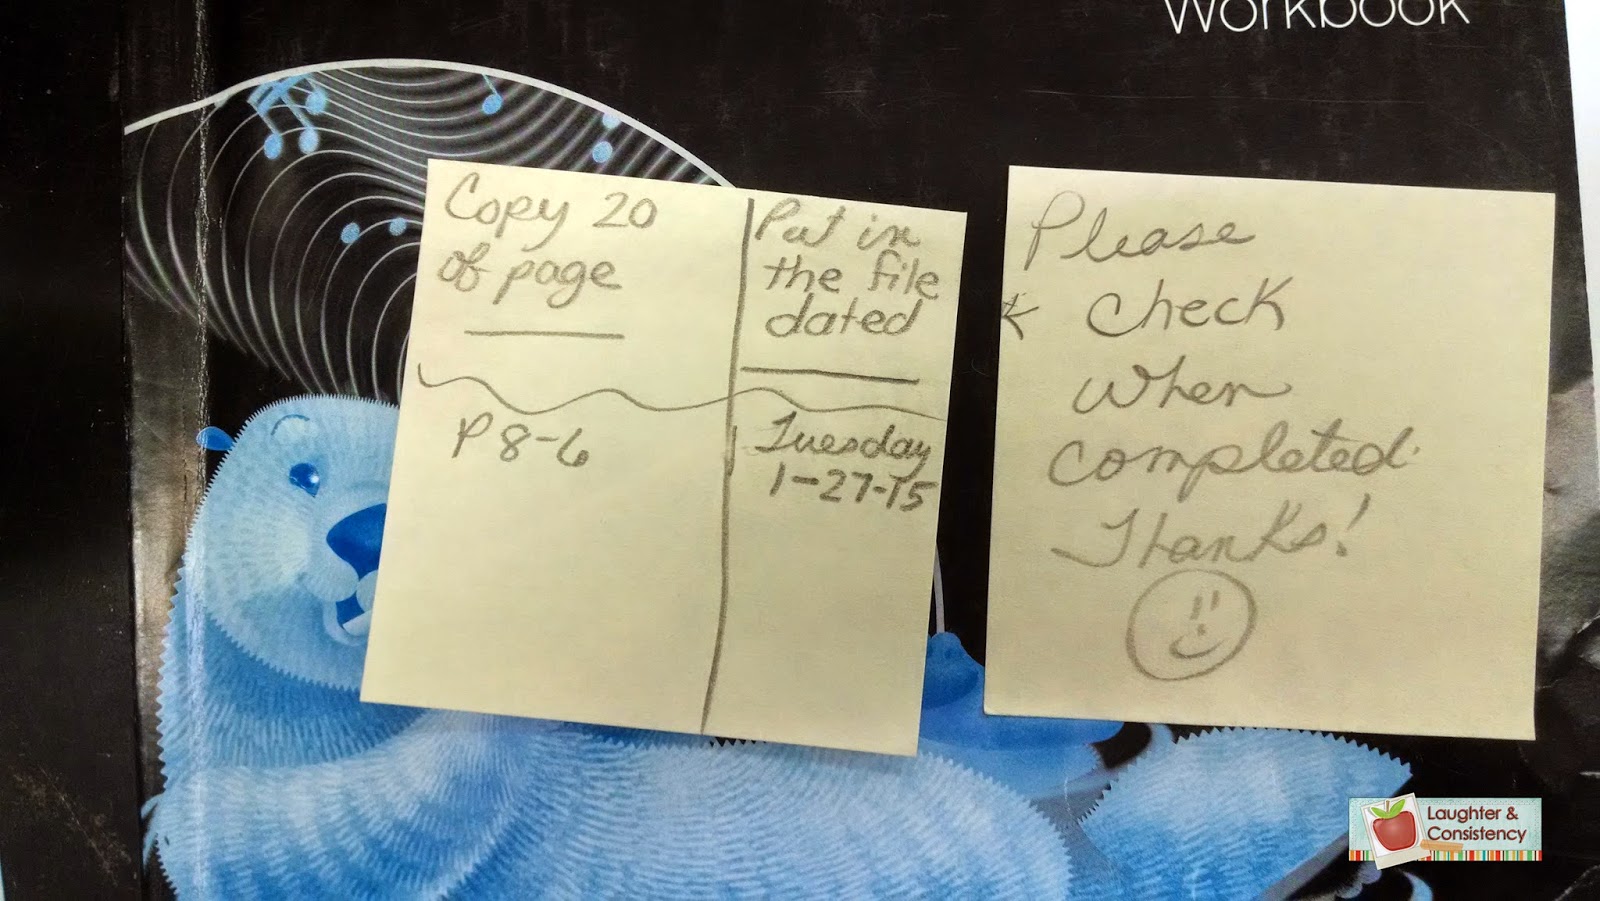 Workbook
Copy 20
of page
Put in
the file
dated
P 8-6
Tuesday
1-27-15
Please
check
when
completed.
Thanks!
Laughter &
Consistency